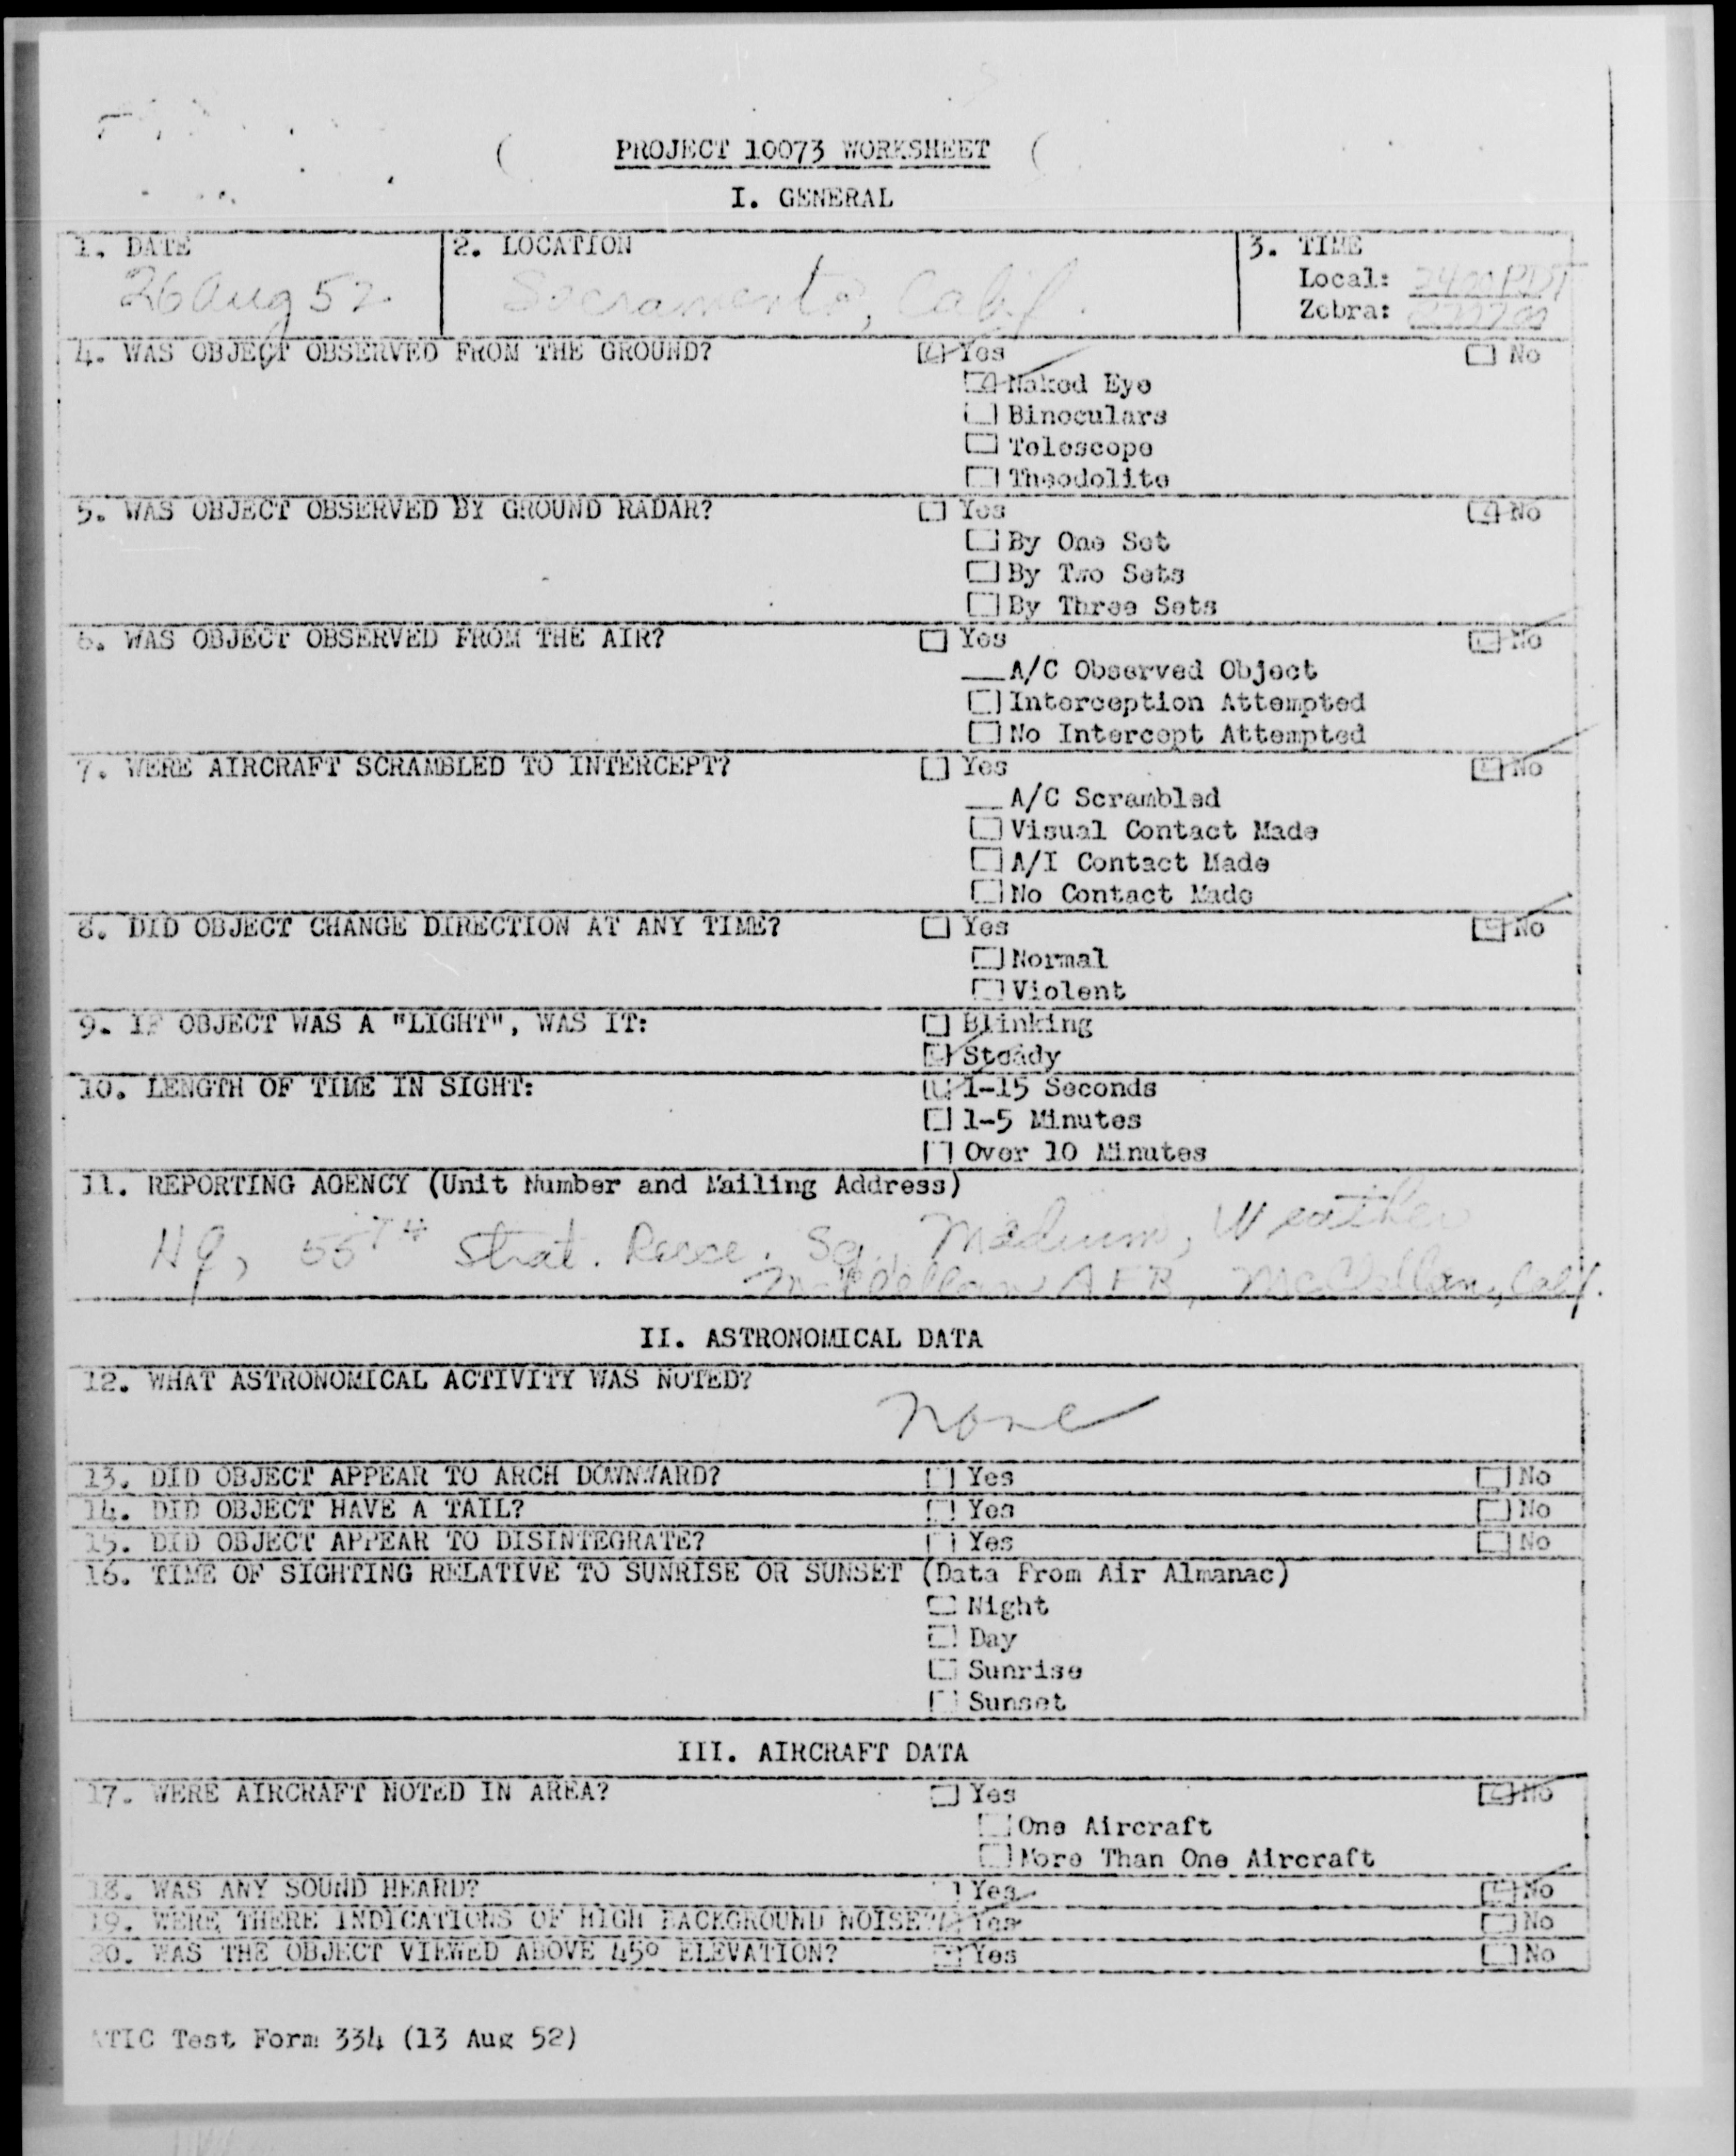 PROJECT 10073 WORKSHEET
I. GENERAL
1. DATE 2. LOCATION 3. TIME
26 Aug 52 Sacramento, Calif. Local: 2400 PDT
Zebra:
4. WAS OBJECT OBSERVED FROM THE GROUND? Yes No
Naked Eye
Binoculars
Telescope
Theodolite
5. WAS OBJECT OBSERVED BY GROUND RADAR? Yes No
By One Set
By Two Sets
By Three Sets
6. WAS OBJECT OBSERVED FROM THE AIR? Yes No
A/C Observed Object
Interception Attempted
No Intercept Attempted
7. WERE AIRCRAFT SCRAMBLED TO INTERCEPT? Yes No
A/C Scrambled
Visual Contact Made
A/I Contact Made
No Contact Made
8. DID OBJECT CHANGE DIRECTION AT ANY TIME? Yes No
Normal
Violent
9. IF OBJECT WAS A "LIGHT", WAS IT: Blinking
Steady
10. LENGTH OF TIME IN SIGHT: 1-15 Seconds
1-5 Minutes
Over 10 Minutes
11. REPORTING AGENCY (Unit Number and Mailing Address)
Hq, 55TH Strat. Recce. Sq., Medium, Weather
McClellan AFB, McClellan, Calif.
II. ASTRONOMICAL DATA
12. WHAT ASTRONOMICAL ACTIVITY WAS NOTED?
None
13. DID OBJECT APPEAR TO ARCH DOWNWARD? Yes No
14. DID OBJECT HAVE A TAIL? Yes No
15. DID OBJECT APPEAR TO DISINTEGRATE? Yes No
16. TIME OF SIGHTING RELATIVE TO SUNRISE OR SUNSET (Data From Air Almanac)
Night
Day
Sunrise
Sunset
III. AIRCRAFT DATA
17. WERE AIRCRAFT NOTED IN AREA? Yes No
One Aircraft
More Than One Aircraft
18. WAS ANY SOUND HEARD? Yes No
19. WERE THERE INDICATIONS OF HIGH BACKGROUND NOISE? Yes No
20. WAS THE OBJECT VIEWED ABOVE 45° ELEVATION? Yes No
ATIC Test Form 334 (13 Aug 52)